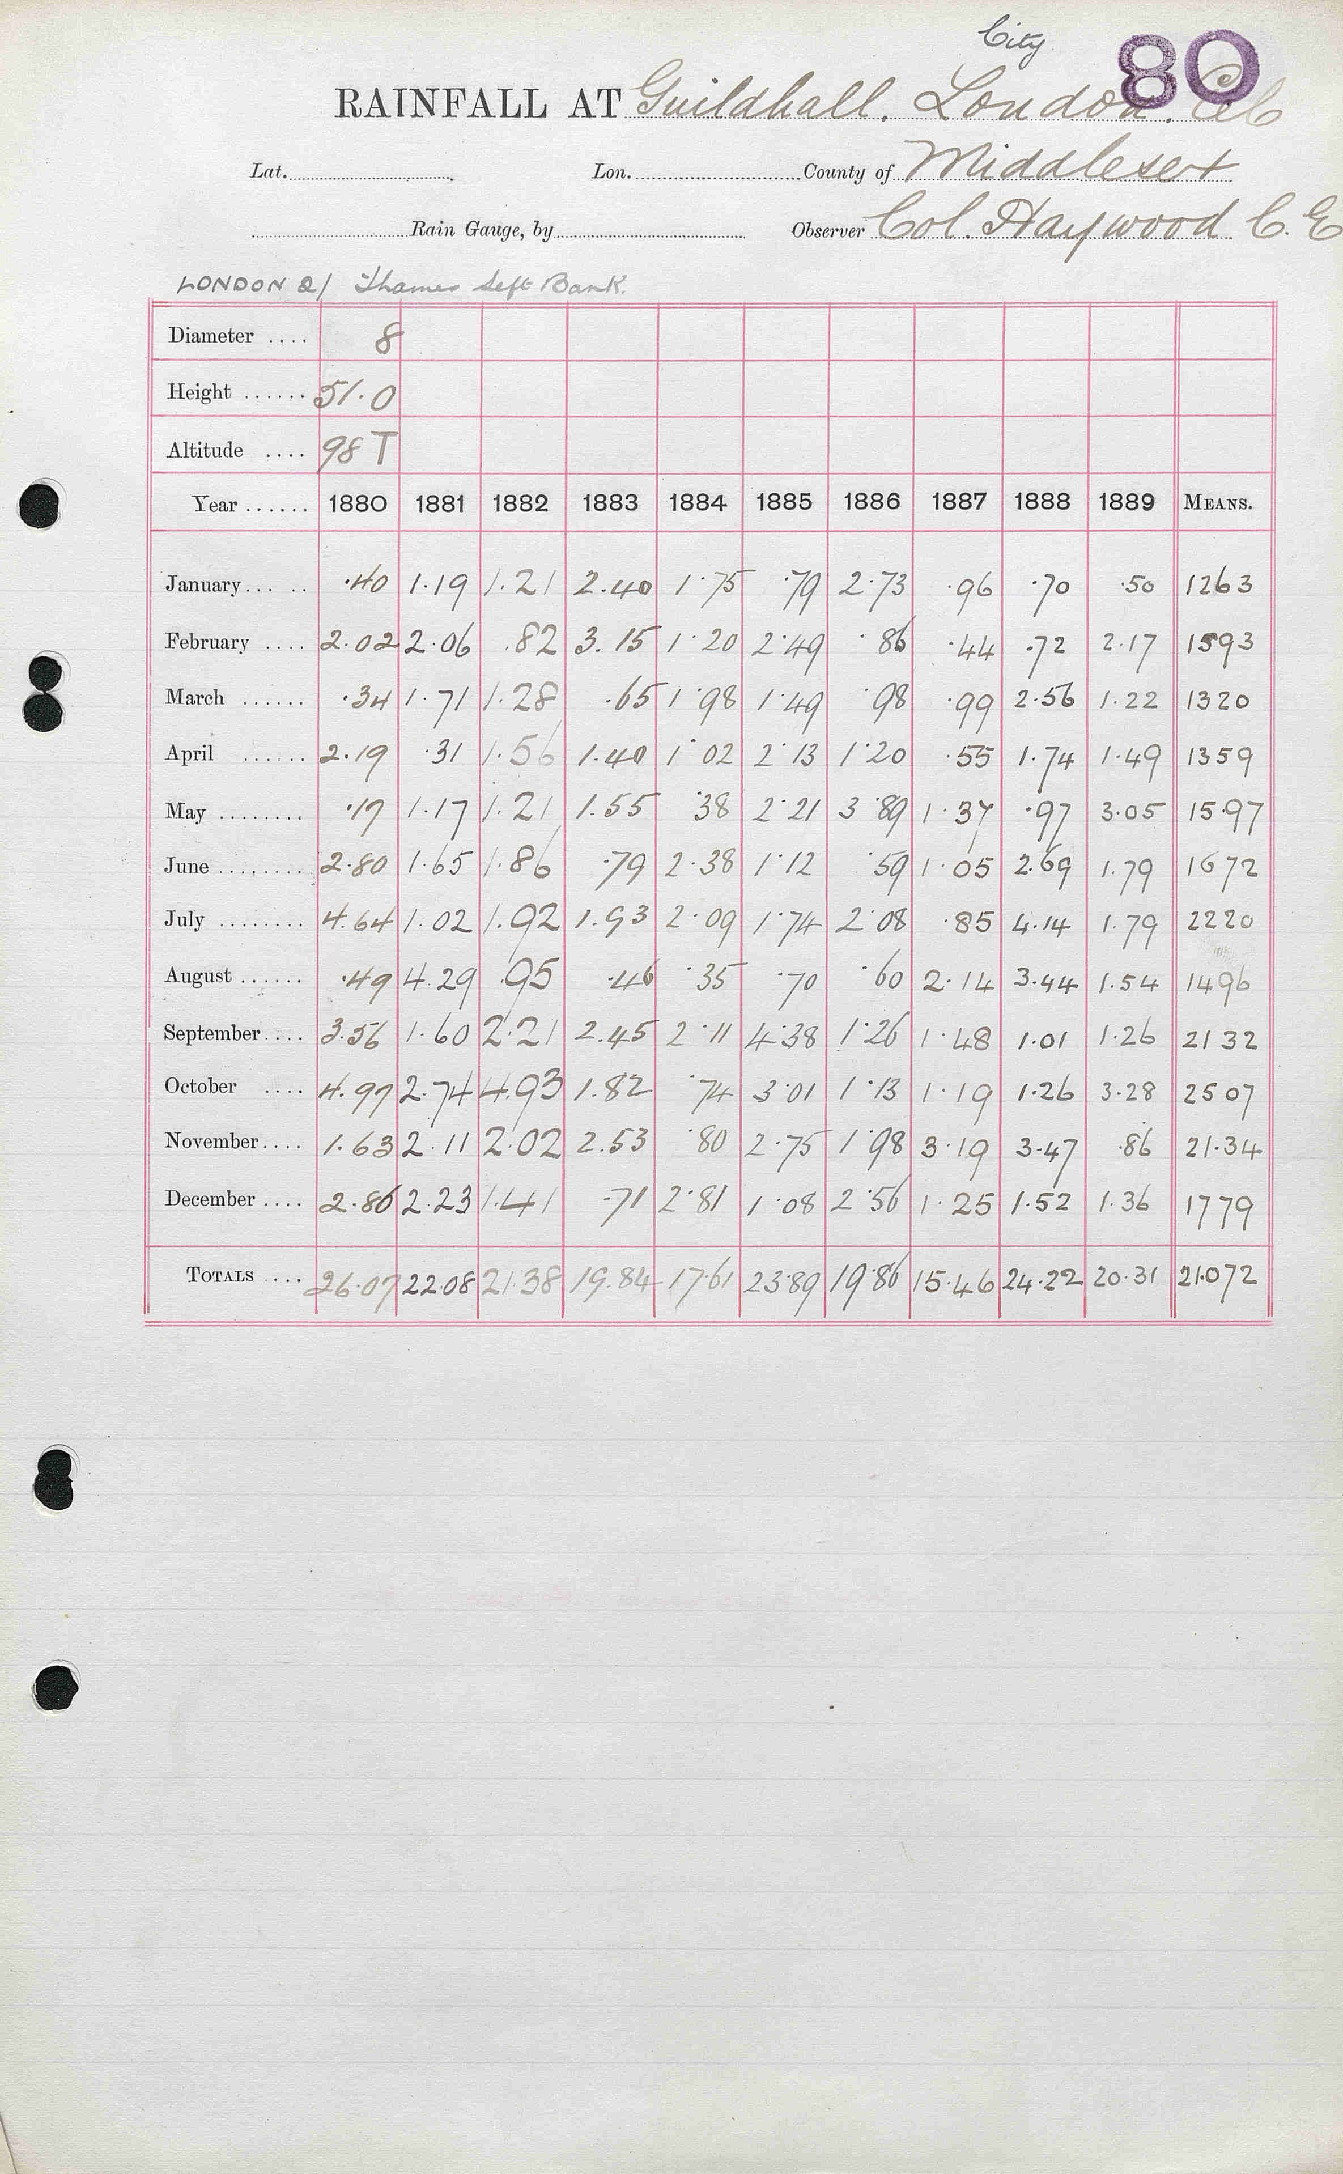 City
80
RAINFALL AT Guildhall. London.
Lat. Lon. County of Middlesex
Rain Gauge, by Observer Col. Haywood C. E
LONDON 2/ Thames Left Bank.
Diameter .... 8
Height ...... 51.0
Altitude .... 98 T
Year ...... 1880 1881 1882 1883 1884 1885 1886 1887 1888 1889 MEANS.
January ... .. .40 1.19 1.21 2.40 1.75 .79 2.73 .96 .70 .50 1263
February .... 2.02 2.06 .82 3.15 1.20 2.49 .86 .44 .72 2.17 1593
March ...... .34 1.71 1.28 .65 1.98 1.49 .98 .99 2.56 1.22 1320
April ...... 2.19 .31 1.56 1.40 1.02 2.13 1.20 .55 1.74 1.49 1359
May ........ .17 1.17 1.21 1.55 .38 2.21 3.89 1.37 .97 3.05 15.97
June ......... 2.80 1.65 1.86 .79 2.38 1.12 .59 1.05 2.69 1.79 1672
July ........ 4.64 1.02 1.92 1.93 2.09 1.74 2.08 .85 4.14 1.79 2220
August ...... .49 4.29 .95 .46 .35 .70 .60 2.14 3.44 1.54 1496
September .... 3.56 1.60 2.21 2.45 2.11 4.38 1.26 1.48 1.01 1.26 2132
October .... 4.97 2.74 4.93 1.82 .74 3.01 1.13 1.19 1.26 3.28 2507
November .... 1.63 2.11 2.02 2.53 .80 2.75 1.98 3.19 3.47 .86 21.34
December .... 2.86 2.23 1.41 .71 2.81 1.08 2.56 1.25 1.52 1.36 1779
TOTALS .... 26.07 22.08 21.38 19.84 17.61 23.89 19.86 15.46 24.22 20.31 21.072